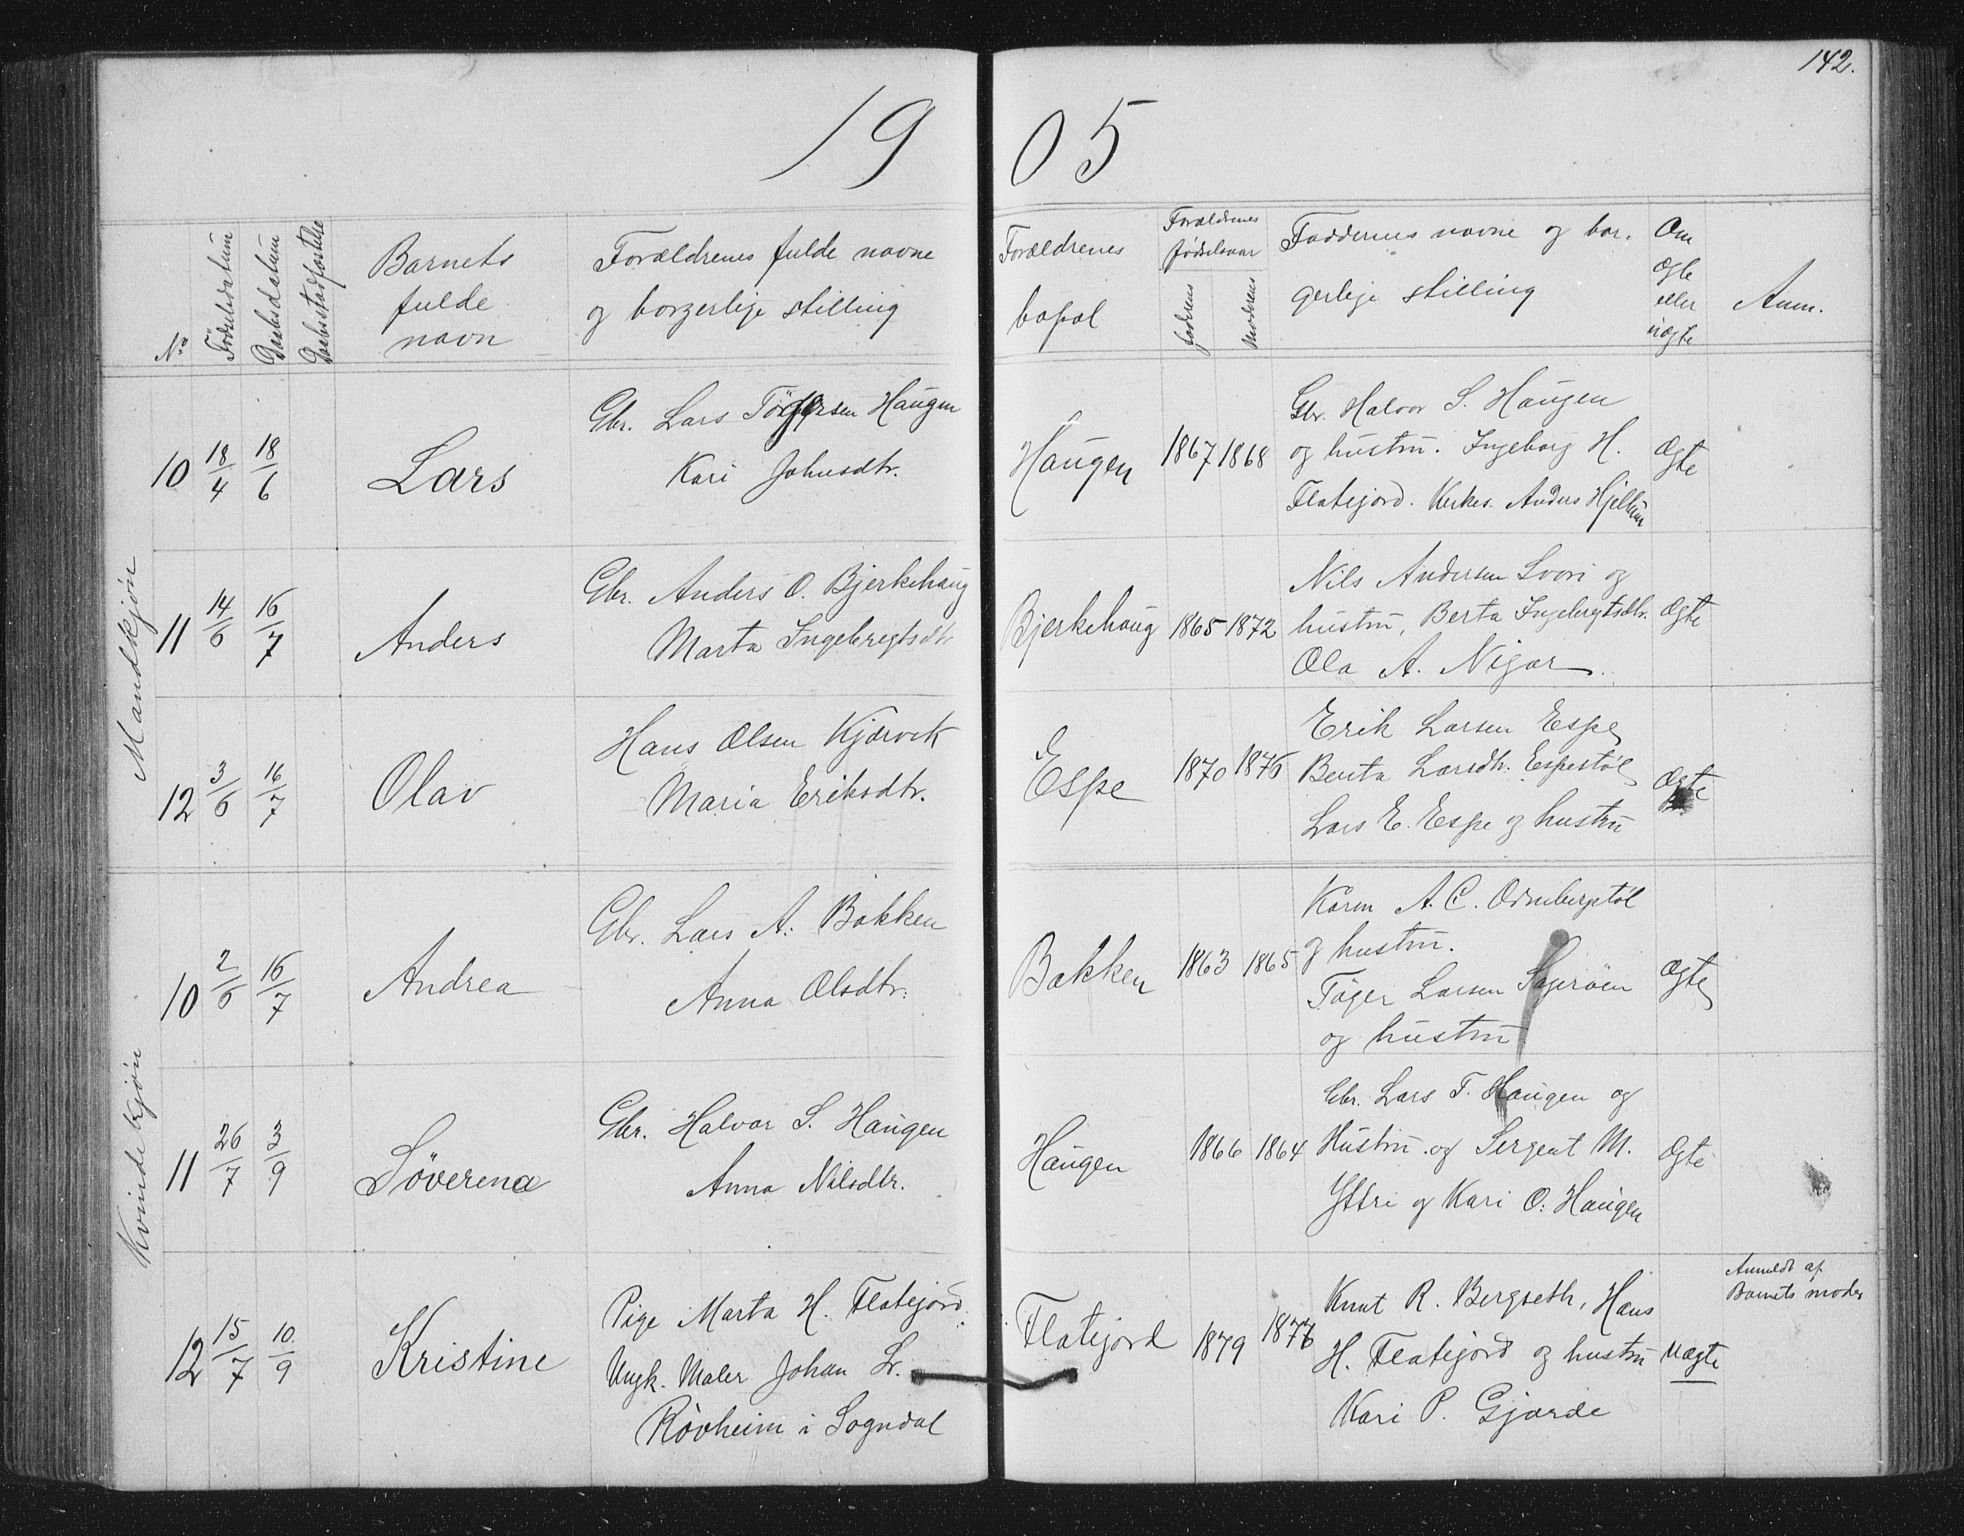 142.
1905
No
Födselsdatum
Daabsdatum
Barnets
fulde
navn
Forældrenes fulde navne
og borgerlige stilling
Forældrenes
bopæl
Forældrenes
fødselsaar
faderens
moderens
Faddernes navne og bor-
gerlige stilling
Om
ægte
eller
uægte
Anm.
Mandkjön
10 18/4 18/6 Lars
Gbr. Lars Haugen
Kari Johnsdtr.
Haugen 1867 1868
Gbr. Halvor S. Haugen
og hustru. Ingeborg H.
Flatejord. Anders
Ægte
11 14/6 16/7 Anders
Gbr. Anders O. Bjerkehaug
Marta Ingebregtsdtr
Bjerkehaug 1865 1872
Nils Andersen Svori og
hustru, Berta Ingebregtsdtr.
Ola A. Nigar.
Ægte
12 3/6 16/7 Olav
Hans Olsen Kjørvik
Maria Eriksdtr.
Espe 1870 1876
Erik Larsen Espe
Berita Larsdtr. Espestøl
Lars E. Espe og hustru
Ægte
Kvindekjön
10 2/6 16/7 Andrea
Gbr. Lars A. Bakken
Anna Olsdtr.
Bakken 1863 1865
Karm A. C.
og hustru.
Tøger Larsen
og hustru
Ægte
11 26/7 3/9 Söverena
Gbr. Halvor S. Haugen
Anna Nilsdtr.
Haugen 1866 1864
Gbr. Lars T. Haugen og
Hustru og Sergent M.
Yttri og Kari O. Haugen
Ægte
12 15/7 10/9 Kristine
Pige Marta H. Flatejord.
Ungk. Maler Johan Lr.
Rövheim i Sogndal
Flatejord 1879 1876
Knut R. Bergseth, Hans
H. Flatejord og hustru
Kari P. Gjærde
Uægte
Anmeldt af
Barnets moder